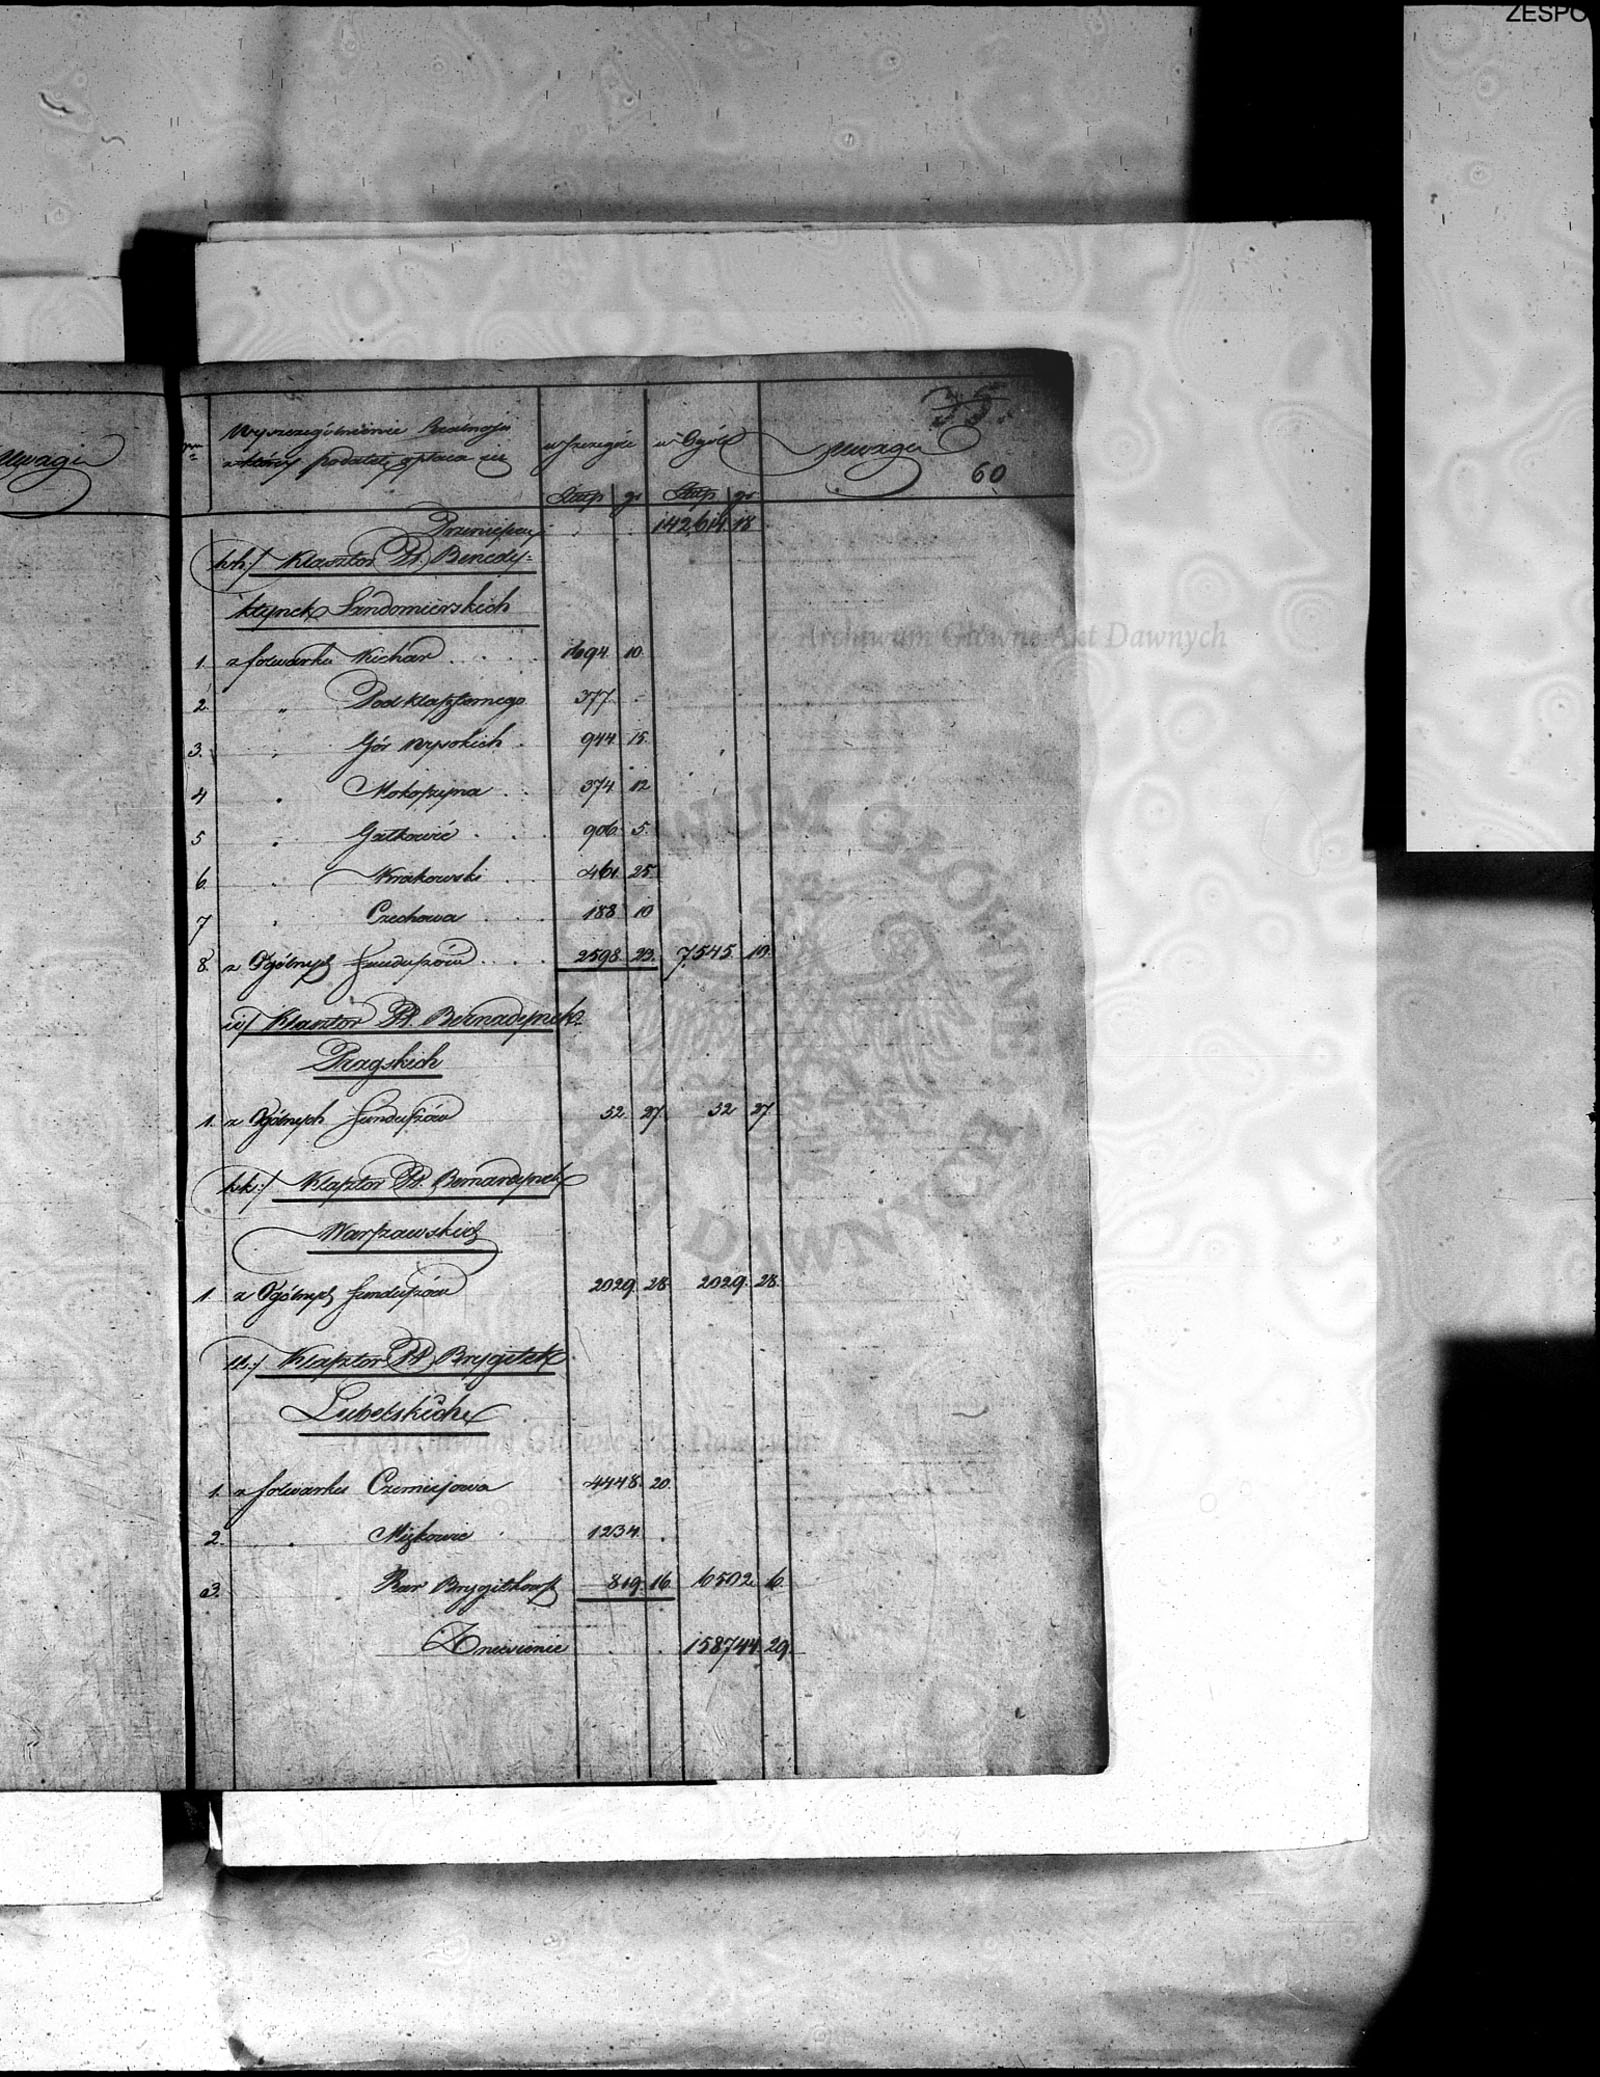 ZESPO
Uwagi
75.
Wyszczególnienie Realności w Szczególe w Ogóle Uwagi
z których podatek opłaca się
60
Złtp gr Złtp gr
Przeniesienie 142,614 18
hh:/ Klasztor PP. Benedy=
ktynek Sandomierskich
1. z folwarku Kichar 1694 10
2. " Podklasztornego 377 -
3. " Gór Wysokich 944 15.
4 " Mokoszyna 374 12
5 " Gałkowic 906 5.
6. " Krakowski 461 25.
7 " Czechowa 188 10
8. z Ogólnych Funduszów 2598 23. 7,545 10.
ii/ Klasztor PP. Bernadynek
Pragskich
1. z Ogólnych Funduszów 52. 27. 52 27.
kk:/ Klasztor PP. Bernardynek
Warszawskich
1. z Ogólnych Funduszów 2029. 28 2029. 28.
ll:/ Klasztor PP. Brygitek
Lubelskich
1. z folwarku Czemiejowa 4448. 20.
2. " Miżkowic 1234. .
3. Kar Brygitkowsk 819. 16. 6502. 6.
Zniesienie 158744. 29.
Archiwum Główne Akt Dawnych
Archiwum Główne Akt Dawnych
ARCHIWUM GŁÓWNE AKT DAWNYCH